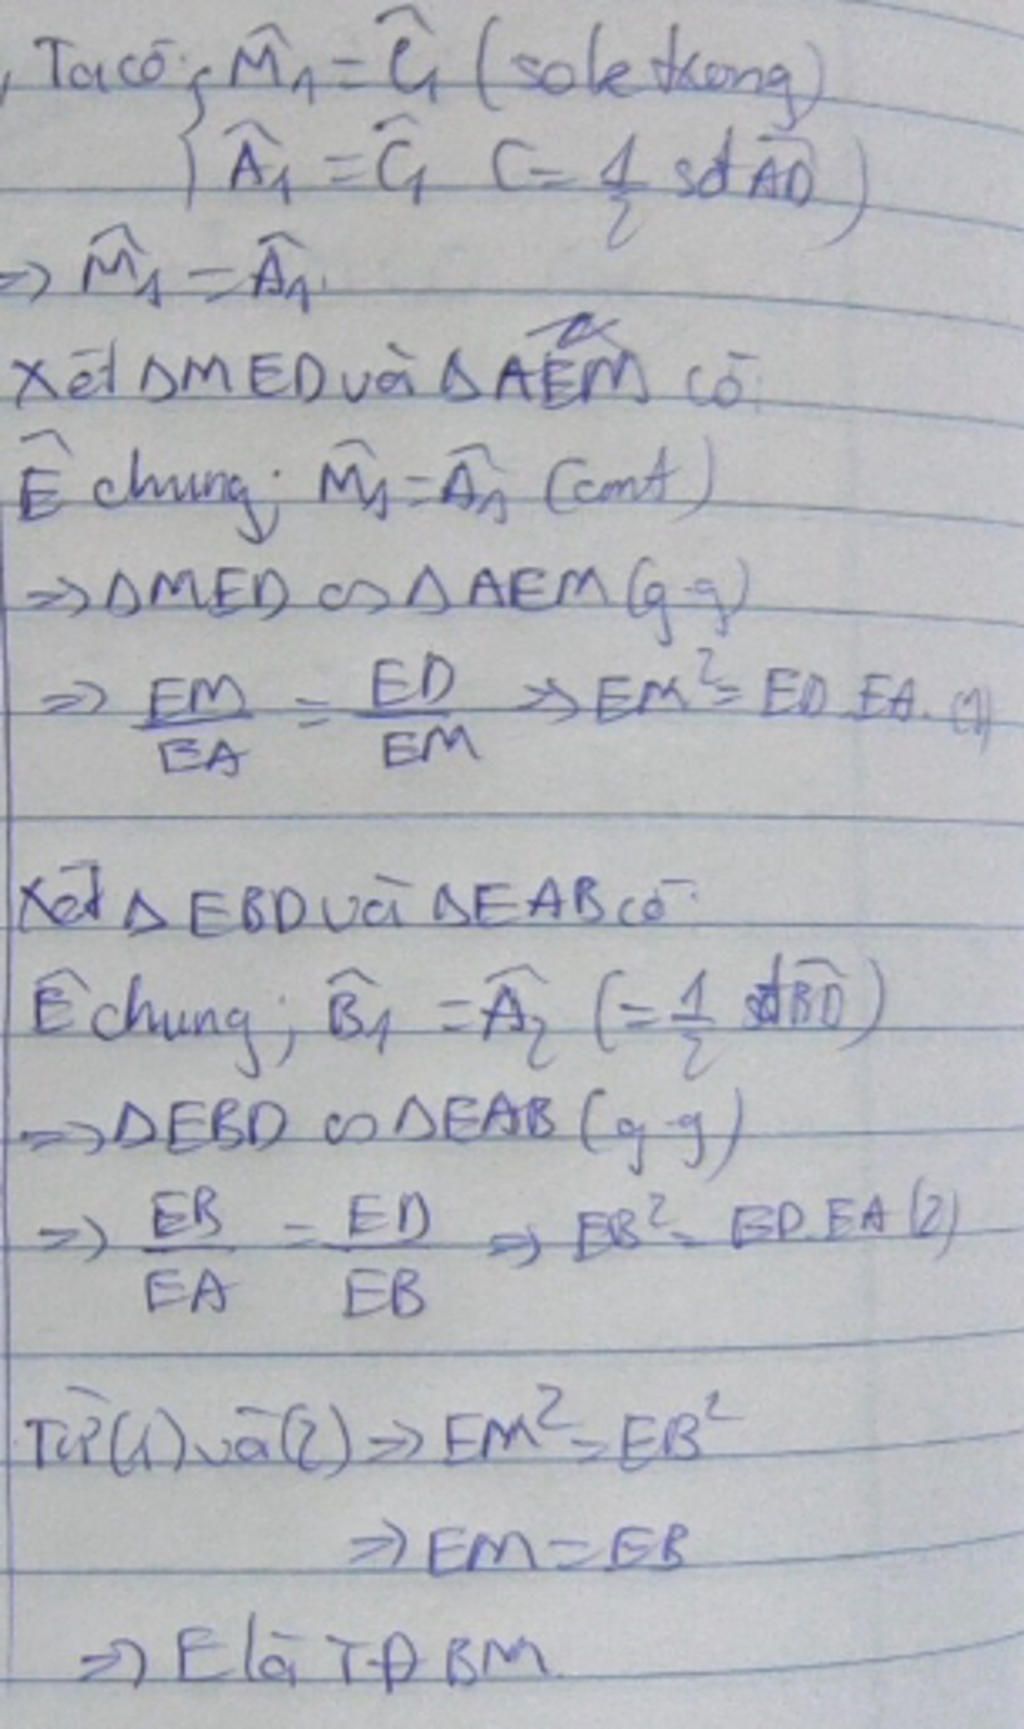 Ta có: { M̂₁ = Ĉ₁ (sole trong)
Â₁ = Ĉ₁ (= 1/2 sđ AD)
=> M̂₁ = Â₁.
Xét ΔMED và ΔAEM có:
Ê chung; M̂₁ = Â₁ (cmt)
=> ΔMED ∽ ΔAEM (g-g)
=> EM/EA = ED/EM => EM² = ED.EA. (1)
Xét Δ EBD và ΔEAB có:
Ê chung; B̂₁ = Â₂ (= 1/2 sđ BD)
=> ΔEBD ∽ ΔEAB (g-g)
=> EB/EA = ED/EB => EB² = ED.EA (2)
Từ (1) và (2) => EM² = EB²
=> EM = EB
=> E là TĐ BM.